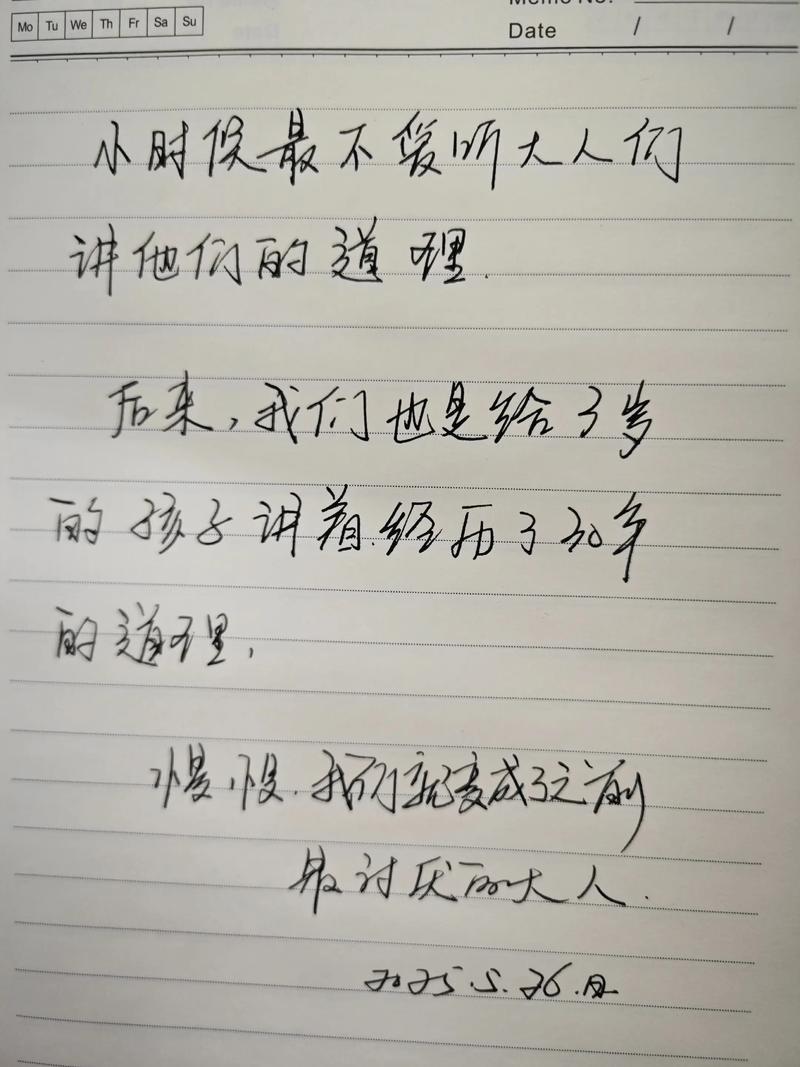 Mo Tu We Th Fr Sa Su
Memo No.
Date / /
小时候最不爱听大人们
讲他们的道理.
后来,我们也是给3岁
的孩子讲着.经历了30年
的道理,
慢慢.我们就变成了之前
最讨厌的大人.
2025.5.26.日